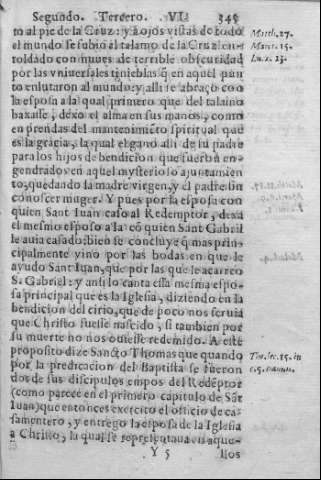 Segundo. Tercero. VII. 345
to al pie de la Cruz: y a ojos vistas de todo
el mundo se subio al talamo de la Cruz: en-
toldado con nuues de terrible obscuridad
por las vniuersales tinieblas q̃ en aquel pun
to enlutaron al mundo: y alli se abraço con
la esposa a la qual primero que del talamo
baxasse, dexo el alma en sus manos, como
en prendas del mantenimiẽto spiritual que
es la gracia, la qual el gano alli de su padre
para los hijos de bendicion que fuerõ en-
gendrados en aquel mysterioso ajuntamien
to, quedando la madre virgen, y el padre sin
conoscer muger. Y pues por la esposa con
quien Sant Iuan caso al Redemptor, dexa
el mesmo esposo a la cõ quien Sant Gabriel
le auia casado: bien se concluye q̃ mas prin-
cipalmente vino por las bodas en que le
ayudo Sant Iuan, que por las que le acarreo
S. Gabriel: y ansi lo canta esta mesma espo-
sa principal que es la Iglesia, diziendo en la
bendicion del cirio, que de poco nos seruia
que Christo fuesse nascido, si tambien por
su muerte no nos ouiesse redemido. A este
proposito dize Sancto Thomas que quando
por la predicacion del Baptista se fueron
dos de sus discipulos empos del Redẽptor
(como parece en el primero capitulo de Sãt
Iuan) que entonces exercito el officio de ca-
samentero, y entrego la esposa de la Iglesia
a Christo, la qual se representaua en aque-
Y 5 llos
Matth. 27.
Marci. 15.
Luc. 23.